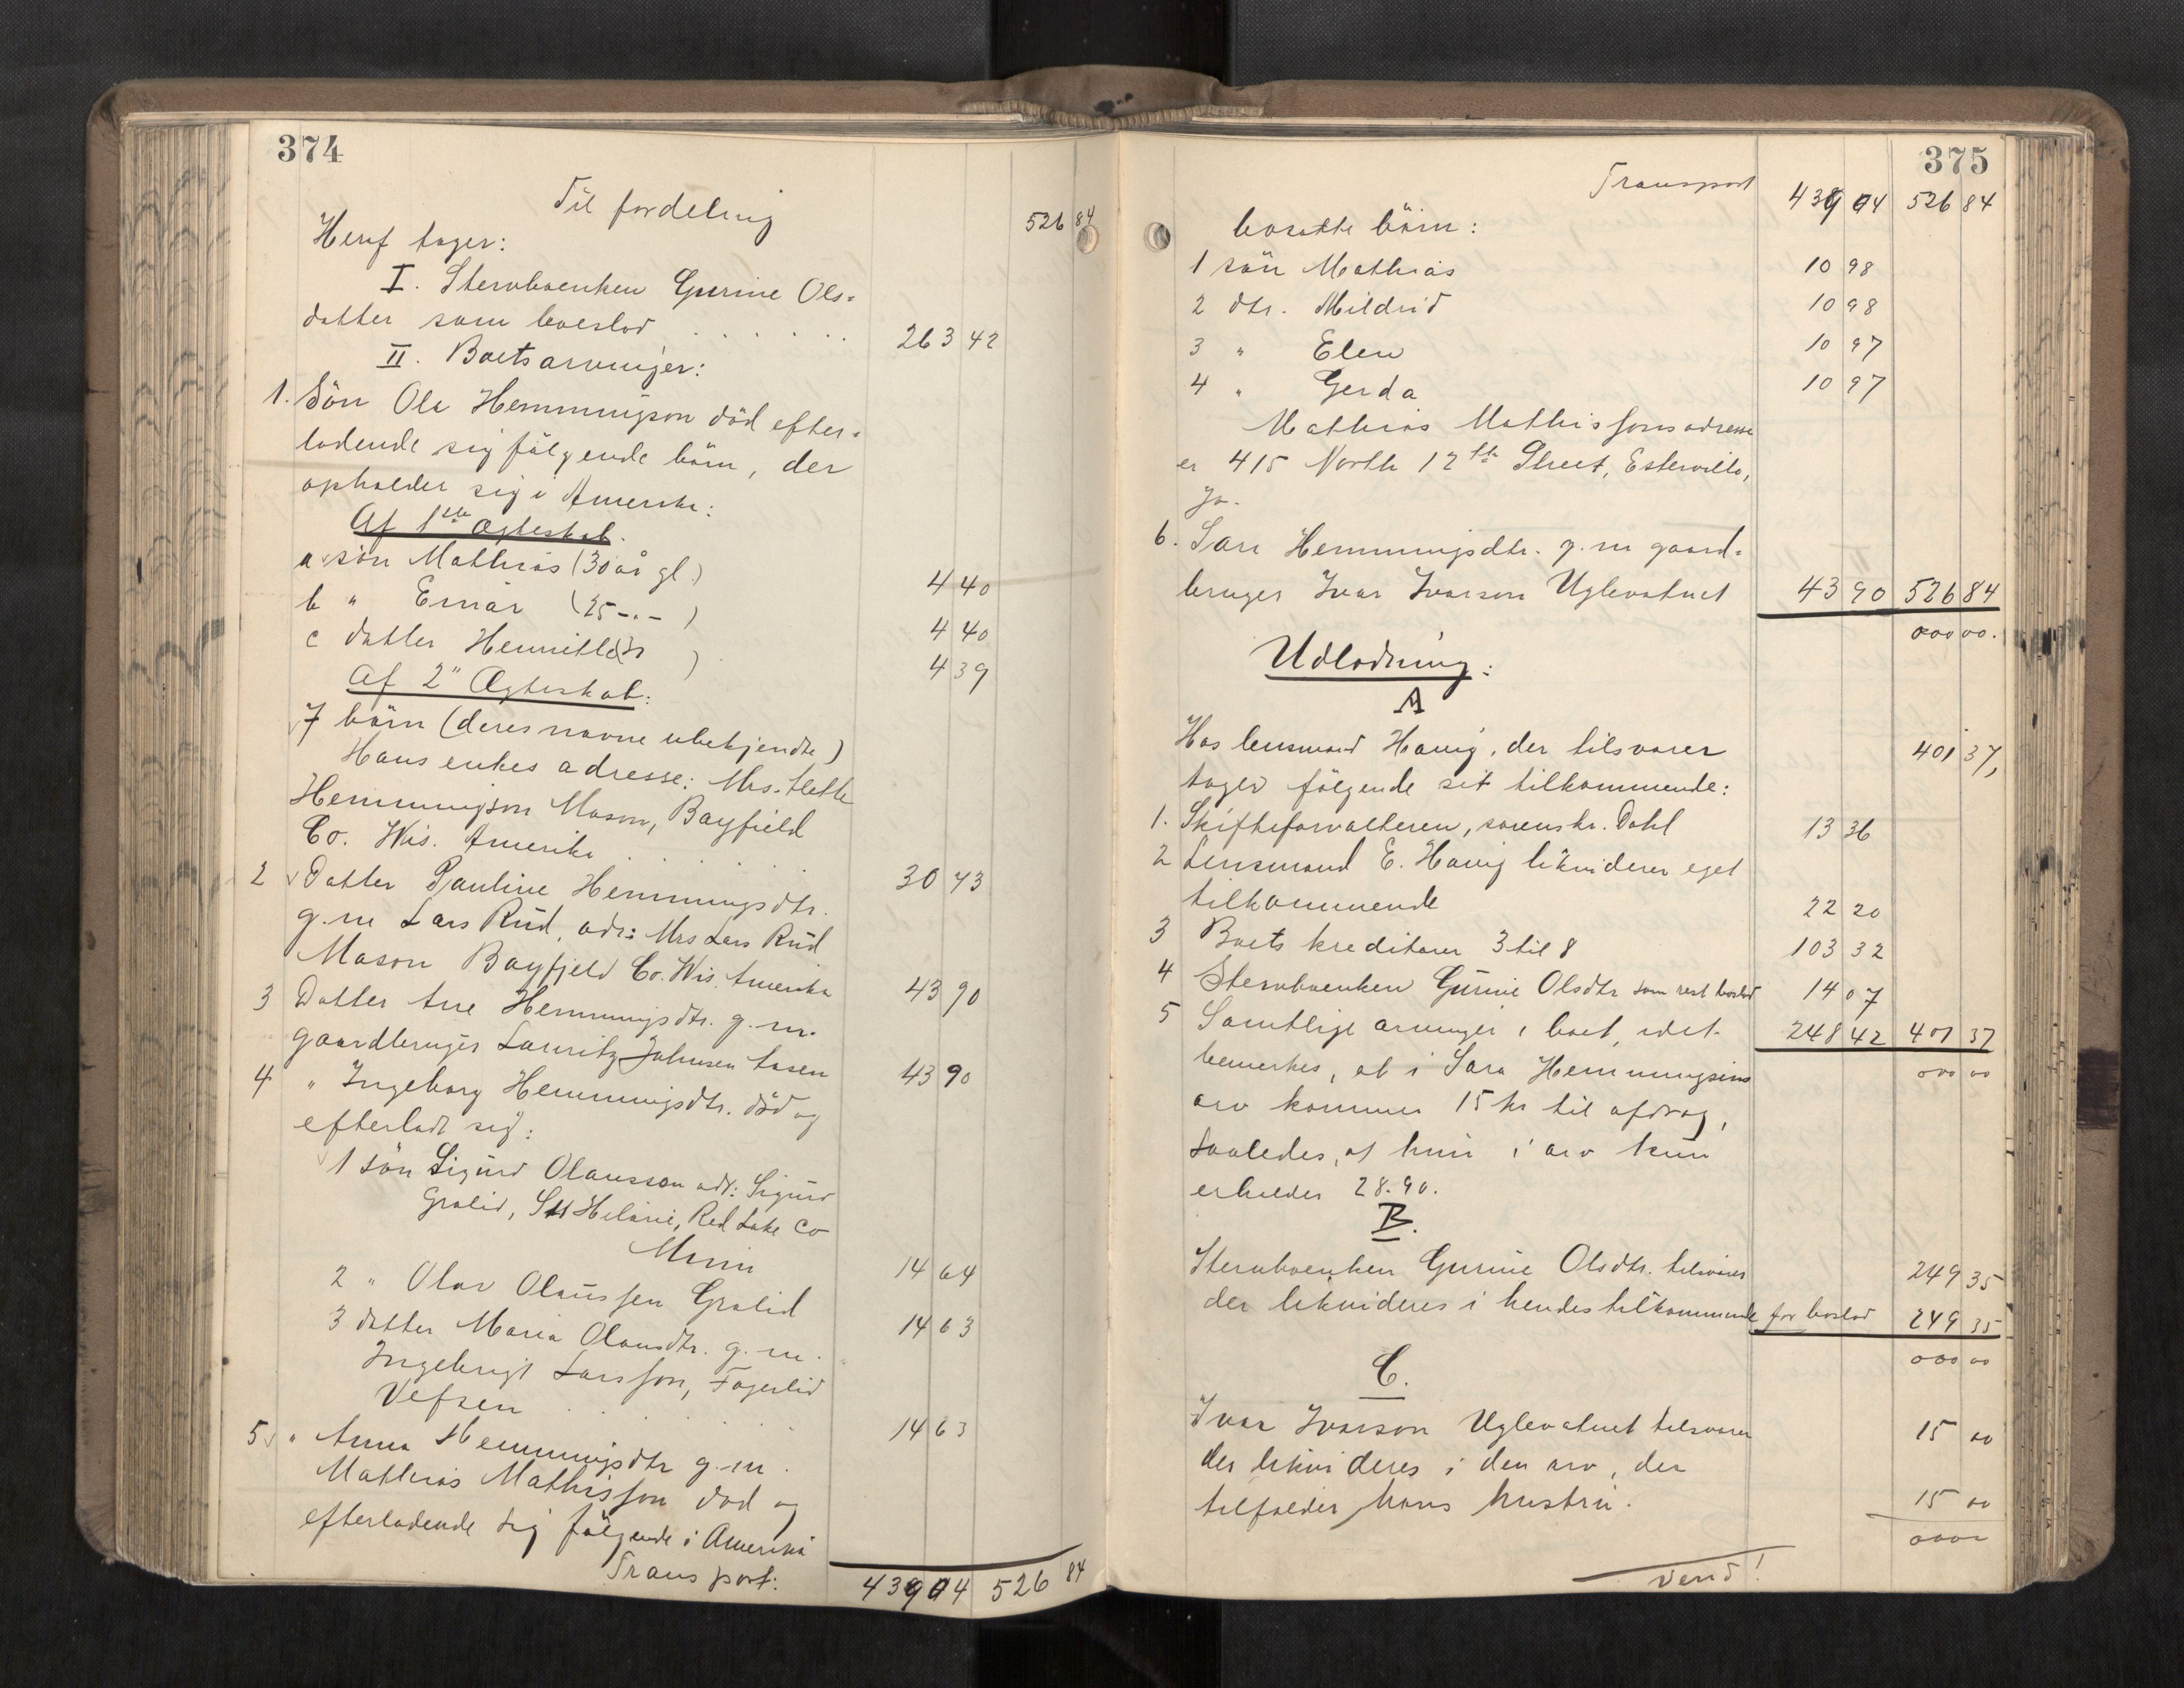 374
Til fordeling 526 84
Heraf tager:
I. Stervboenken Gurine Ols-
datter som boeslod . . . . . . . 263 42
II. Boets arvinger:
1. Sön Ole Hemmingson död efter-
ladende sig fölgende börn, der
opholder sig i Amerika:
Af 1ste Ægteskab.
a sön Mathias (30 år gl.) 4 40
b " Einar (25 -"-) 4 40
c datter Henritte 4 39
Af 2" Ægteskab:
7 börn (deres navne ubekjendte)
Hans enkes adresse: Mrs. Mette
Hemmingson Mason, Bayfield
Co. Wis. Amerika . . . . . 30 73
2 Datter Pauline Hemmingsdtr.
g.m Lars Rud, adr: Mrs Lars Rud
Mason Bayfjeld Co. Wis. Amerika 43 90
3 Datter Ane Hemmingsdtr. g.m.
gaardbruger Lauritz Johnsen Aasen 43 90
4 " Ingeborg Hemmingsdtr. död og
efterladt sig:
1 sön Sigurd Olaussen adr: Sigurd
Gralid, St Helarie, Red Lake Co
Minn 14 64
2 " Olav Olaussen Gralid 14 63
3 datter Maria Olausdtr. g.m.
Ingebrigt Larsson, Fagerlid
Vefsen . . . . . 14 63
5 " Anna Hemmingsdtr g.m.
Mathias Mathisson död og
efterladende sig fölgende i Amerika
Transport: 439 04 526 84
375
Transport 439 04 526 84
bosatte börn:
1 sön Mathias 10 98
2 dtr. Mildrid 10 98
3 " Elen 10 97
4 " Gerda 10 97
Mathias Mathissons adresse
er 415 North 12th Street, Esterville,
Ja.
6. Sara Hemmingsdtr. g.m gaard-
bruger Ivar Ivarson Uglevatnet 43 90 526 84
000 00.
Udlodning:
A
Hos lensmand Havig, der tilsvarer 401 37,
tager fölgende sit tilkommende:
1. Skifteforvalteren, sorenskr. Dahl 13 36
2 Lensmand E. Havig likviderer eget
tilkommende 22 20
3 Boets kreditorer 3 til 8 103 32
4 Stervboenken Gurine Olsdtr som rest boslod 14 07
5 Samtlige arvinger i boet, idet 248 42 401 37
bemerkes, at i Sara Hemmingsens 000 00
arv kommer 15 kr til afdrag,
saaledes, at hun i arv kun
erholder 28.90.
B.
Stervboenken Gurine Olsdtr. tilsvarer 249 35
der likvideres i hendes tilkommende for boslod 249 35
000 00
C.
Ivar Ivarson Uglevatnet tilsvarer 15 00
der likvideres i den arv, der
tilfalder hans hustru. 15 00
0000
Vend!